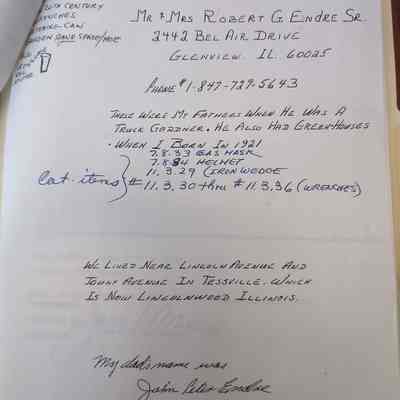 20TH CENTURY
MR & MRS ROBERT G. ENDRE SR.
2442 BEL AIR DRIVE
GLENVIEW IL. 60025
PHONE #1-847-729-5643
THESE WERE MY FATHERS WHEN HE WAS A
TRUCK GARDNER. HE ALSO HAD GREENHOUSES
• WHEN I BORN IN 1921
7.8.33 GAS MASK
7.8.34 HELMET
11.3.29 (IRON WEDGE
Cat. items } # 11.3.30 thru # 11.3.36 (WRENCHES)
WE LIVED NEAR LINCOLN AVENUE AND
TOUHY AVENUE IN TESSVILLE. WHICH
IS NOW LINCOLNWOOD ILLINOIS.
My dad's name was
John Peter Endre